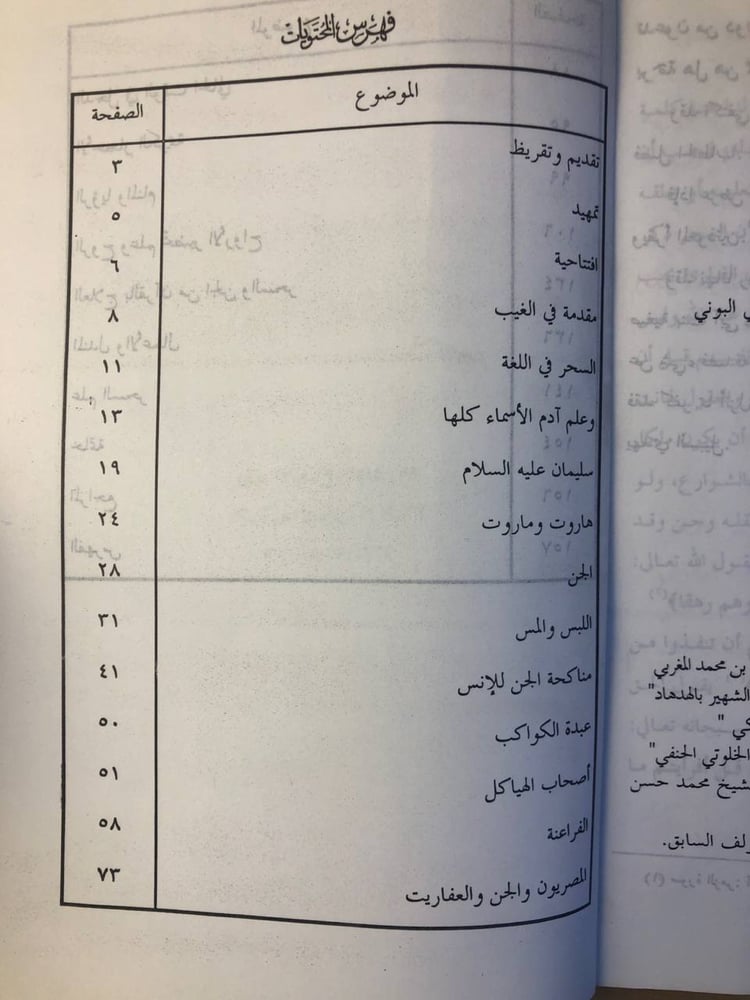 فهرس المحتويات
الموضوع الصفحة
تقديم وتقريظ ٣
تمهيد ٥
افتتاحية ٦
مقدمة في الغيب ٨
السحر في اللغة ١١
وعلم آدم الأسماء كلها ١٣
سليمان عليه السلام ١٩
هاروت وماروت ٢٤
الجن ٢٨
اللبس والمس ٣١
مناكحة الجن للإنس ٤١
عبدة الكواكب ٥٠
أصحاب الهياكل ٥١
الفراعنة ٥٨
المصريون والجن والعفاريت ٧٣
البوني
بن محمد المغربي
الشهير بالهدهاد"
الخلوتي الحنفي"
محمد حسن
السابق.